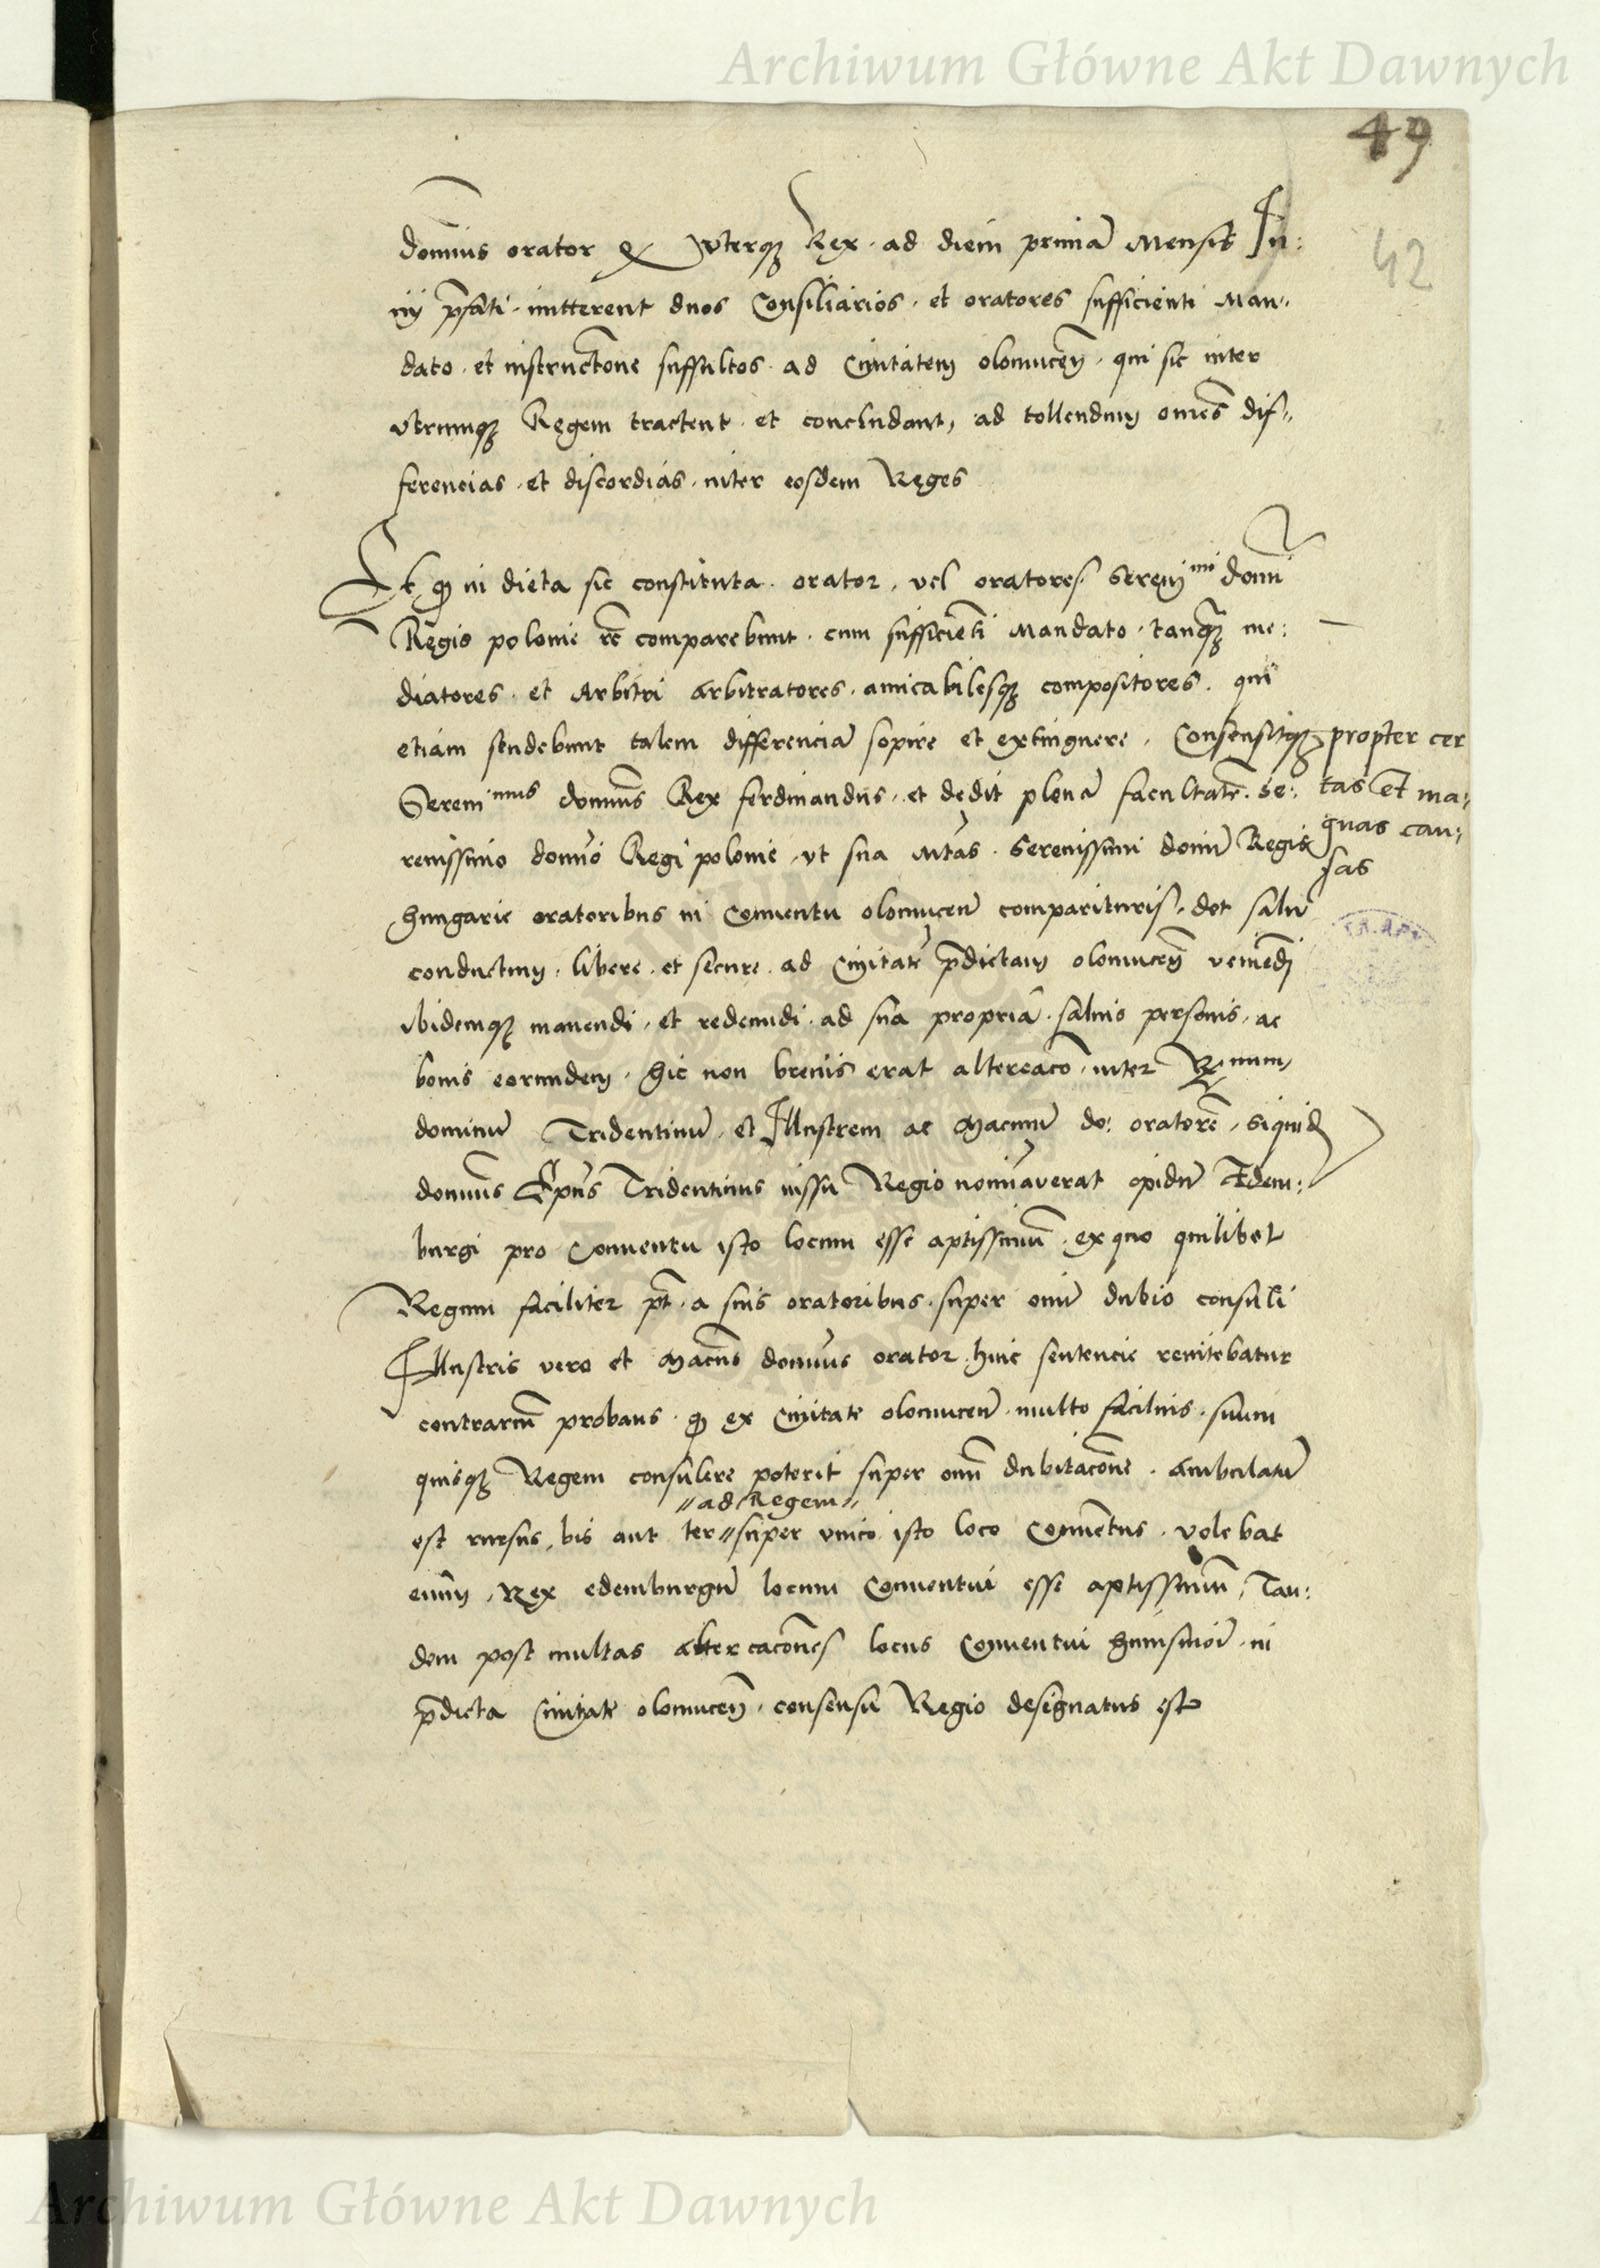 Archiwum Główne Akt Dawnych
49
42
dominus orator q Vterq3 Rex · ad diem primā Mensis Iu:
nij p̄fati · mitterent duos Consiliarios · et oratores sufficienti Man„
dato · et instructōne suffultos · ad Ciuitatem olomuceñ · qui sic inter
vtrumq3 Regem tractent · et concludant, ad tollendum omēs dif„
ferencias · et discordias · inter eosdem Reges
Et q in dieta sic constituta · orator · vel oratores Sereñmi domi
Regis polonie comparebunt · cum sufficiēti Mandato · tanq3 me:
diatores · et Arbitri arbitratores · amicabilesq3 compositores · qui
etiam studebunt talem differenciā sopire et extinguere · Consensitq3 propter cer
Serenimus domūs Rex ferdinandus · et dedit plenā facultatē · Se: tas et ma:
renissimo domō Regi polonie · vt sua Mtas · Serenissimi domī Regis gnas cau:
sas
hungarie oratoribus in Conuentu olomuceñ comparituris · det saluū
conductum · libere · et secure · ad Ciuitatē p̄dictam olomuceñ veniēdi
ibidemq3 manendi · et redeundi · ad sua propria · saluis personis · ac
bonis eorundem · hic non breuis erat altercacō · inter Rmum
dominū Tridentinū · et Illustrem ac Macum do: oratorē · siquid
domūs Ep̄us Tridentinus iussu Regio nominauerat opidū Edem:
burgi pro Conuentu isto locum esse aptissimū · ex quo quilibet
Regum faciliter pt · a suis oratoribus · super omī dubio consuli
Illustris vero et Macus domūs orator huic sentencie renitebatur
contrariū probans · q ex Ciuitate olomuceñ · multo facilius · suum
quisq3 Regem consulere poterit super omi dubitacōne · ambulatū
„ad Regem„
est rursus, bis aut ter „super vnico isto loco Conuētus · volebat
enim, Rex edemburgū locum Conuentui esse aptissimū, Tan:
dem post multas altercacōnes locus Conuentui huiusmōi · in
p̄dicta Ciuitate olomuceñ · consensu Regio designatus est
Archiwum Główne Akt Dawnych